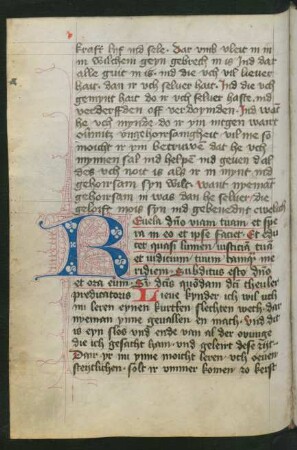 kraft lyf ind sele. Dar vmb vleit in in
in wilchem geyn gebrech in is. Ind dat
alle gut in is. ind die uch vil liever
hait. dan ir uch selver hait. Ind die uch
gemynt hait do ir uch selver haste. ind
verderfden off verdoymden. Ind wat
he uch mynde do ir ym intgen wart
ouermitz ungehorsamheit. vil me so
moicht ir ym betruwe dat he uch
mynnen sal ind helpen ind geven dat
des uch noit is als ir in mynt ind
gehorsam syn wilt. want nyemat
gehorsam in was dan he selver die
geloift mois syn ind gebenedit ewelich
Revela dno viam tuam. et spe
ra in eo et ipse faciet. Et edu
cet quasi lumen iusticia tua
et iudicium tuum tamq me
ridiem. Subditus esto dno
et ora eum. doctoris
predicatoris Lieve kynder ich wil uch
nu leren eynen kurtten slechten wech. dar
nyeman ynne gevallen en mach. Ind dat
is eyn slos und ende van al der ovunge
die ich gesacht hain. und geleirt dese zijt.
Dair ir nu ynne moicht leren uch oeven
stentlichen. solt ir ummer komen zo kerst